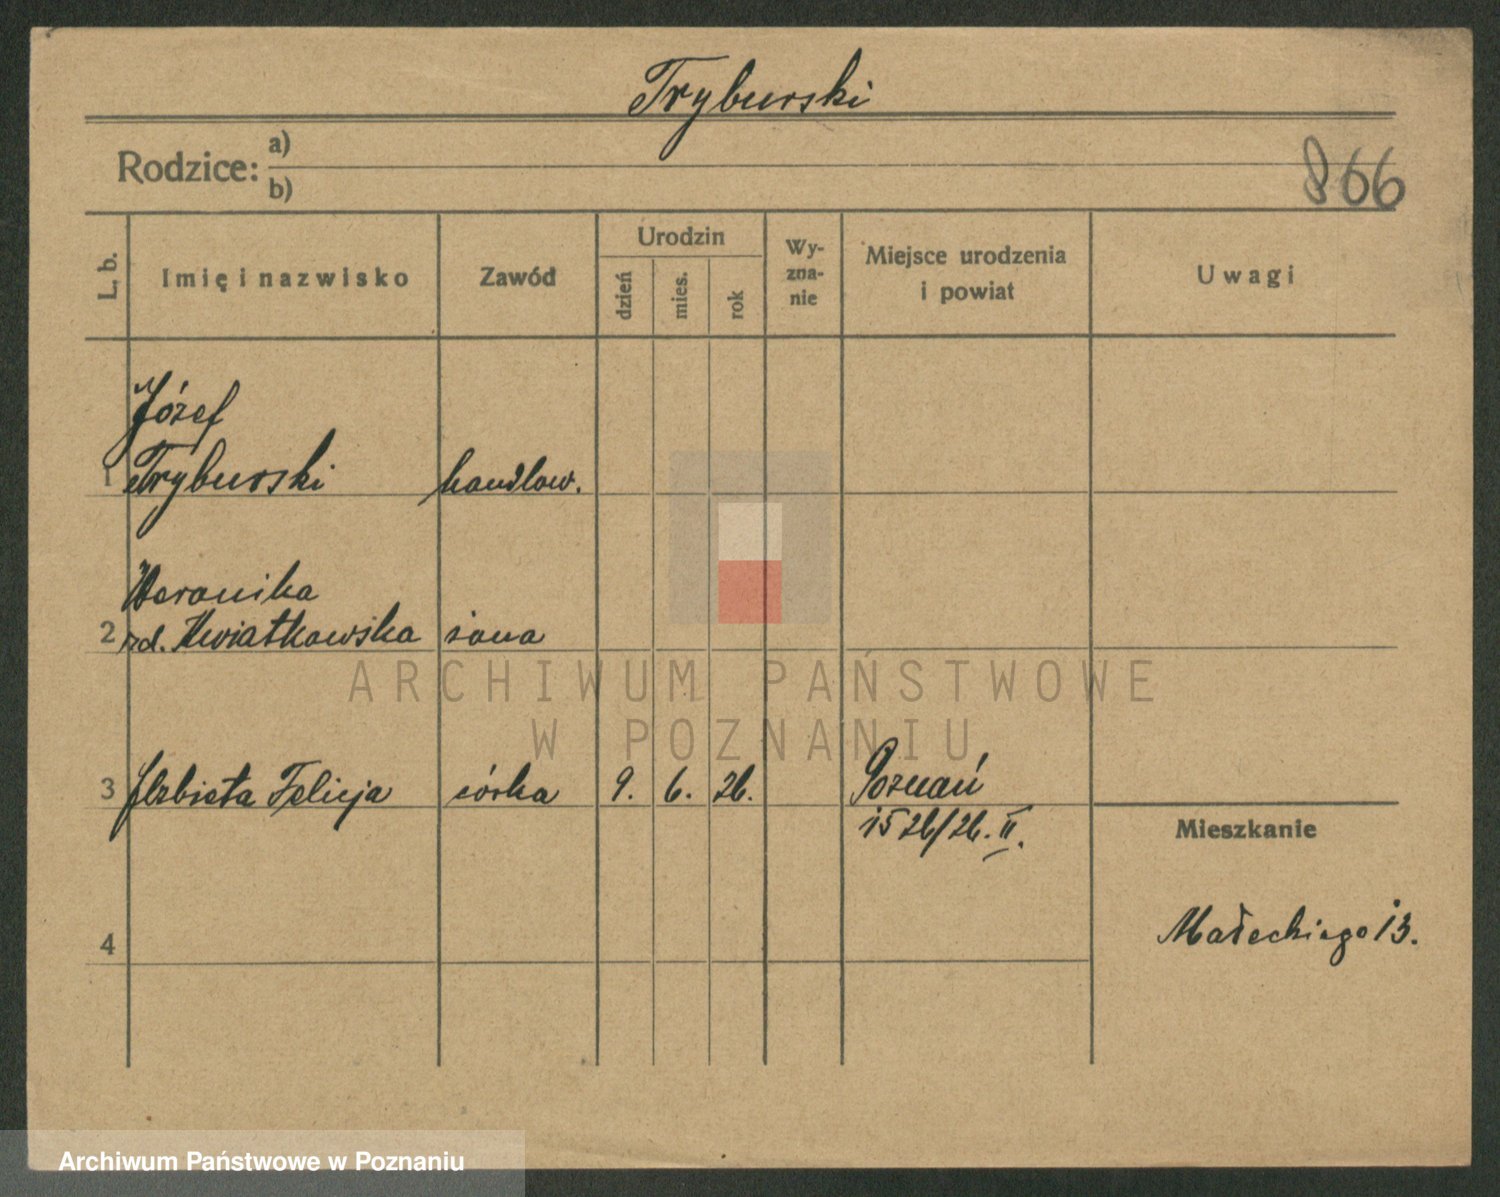 Tryburski
Rodzice: a)
b)
866
L. b.
Imię i nazwisko
Zawód
Urodzin
dzień
mies.
rok
Wy-
zna-
nie
Miejsce urodzenia
i powiat
Uwagi
Józef
1 Tryburski handlow.
Weronika
2 rd. Kwiatkowska żona
3 Elzbieta Felicja córka 9. 6. 26. Poznań
1526/26. II.
Mieszkanie
4
Małeckiego 13.
ARCHIWUM PAŃSTWOWE
W POZNANIU
Archiwum Państwowe w Poznaniu